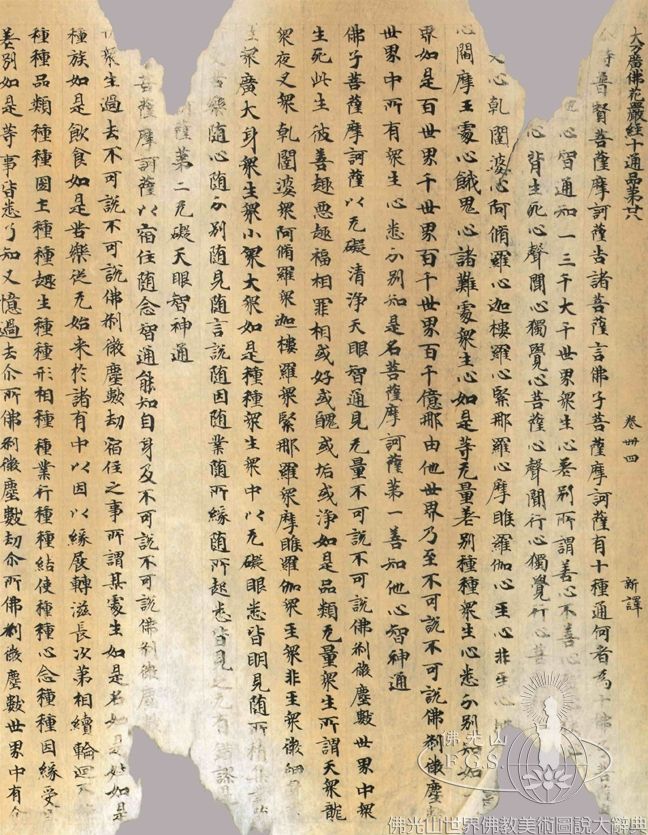 大方廣佛花嚴經十通品第廿八 卷卌四 新譯
尒時普賢菩薩摩訶薩告諸菩薩言佛子菩薩摩訶薩有十種通何者為十佛
心智通知一三千大千世界衆生心差別所謂善心不善心
心背生死心聲聞心獨覺心菩薩心聲聞行心獨覺行心菩
心乾闥婆心阿脩羅心迦樓羅心緊那羅心摩睺羅伽心
心閻摩王處心餓鬼心諸難處衆生心如是等无量差別種種衆生心悉分別知如
界如是百世界千世界百千世界百千億那由他世界乃至不可說不可說佛刹微塵
世界中所有衆生心悉分別知是名菩薩摩訶薩第一善知他心智神通
佛子菩薩摩訶薩以无礙清淨天眼智通見无量不可說不可說佛刹微塵數世界中衆
生死此生彼善趣惡趣福相罪相或好或醜或垢或淨如是品類无量衆生所謂天衆龍
衆夜叉衆乾闥婆衆阿脩羅衆迦樓羅衆緊那羅衆摩睺羅伽衆
衆廣大身衆生衆小衆大衆如是種種衆生衆中以无礙眼悉皆明見隨所積集
樂隨心隨分別隨見隨言說隨因隨業隨所緣隨所起悉皆見之无有錯謬
薩第二无礙天眼智神通
菩薩摩訶薩以宿住隨念智通能知自身及不可說不可說佛刹微塵
衆生過去不可說不可說佛刹微塵數劫宿住之事所謂某處生如是名如是姓如是
種族如是飲食如是苦樂從无始来於諸有中以因以緣展轉滋長次第相續輪迴不
種種品類種種國土種種趣生種種形相種種業行種種結使種種心念種種因緣受
差別如是等事皆悉了知又憶過去尒所佛刹微塵數劫尒所佛刹微塵數世界中有尒
佛光山
F.G.S.
佛光山世界佛教美術圖說大辭典